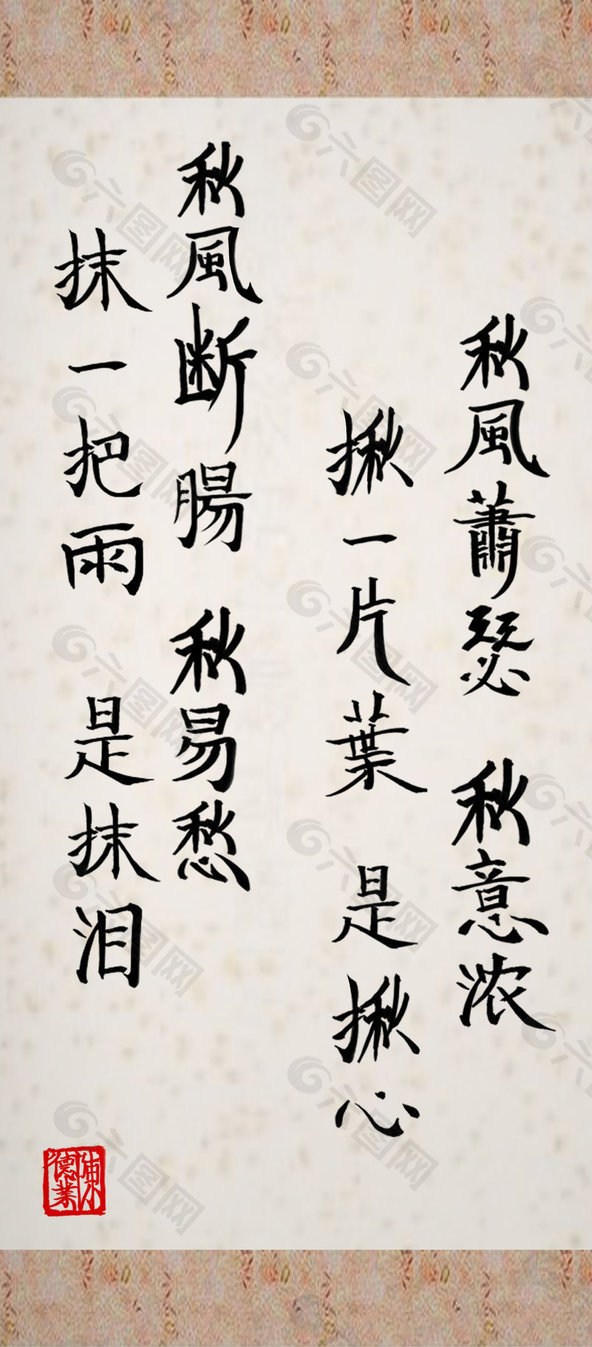 秋風蕭瑟 秋意浓
揪一片葉 是揪心
秋風断腸 秋易愁
抹一把雨 是抹泪
陳德業
六图网